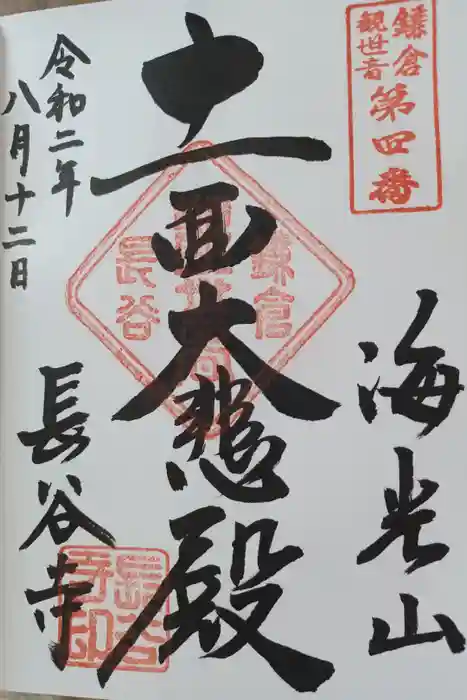 鎌倉
観世音
第四番
海光山
十一面大悲殿
鎌倉
長谷
令和二年
八月十二日
長谷寺
長谷
寺印